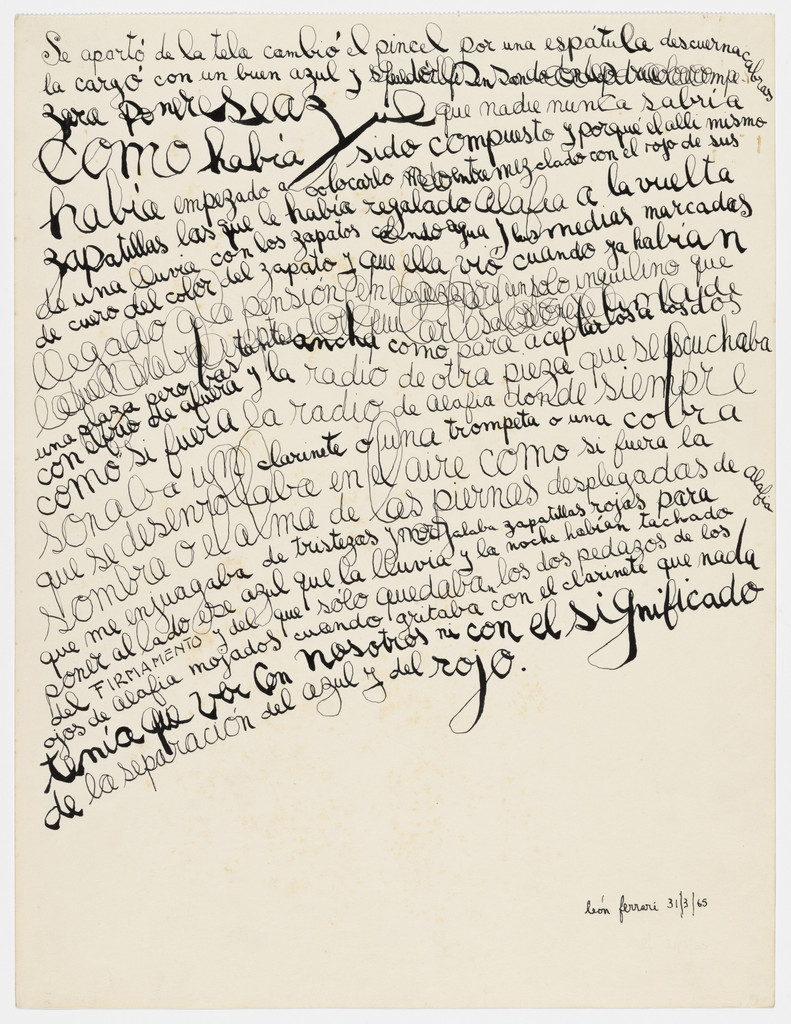 Se apartó de la tela cambió el pincel por una espátula descuerna
la cargó con un buen azul y
zara ponerse az ul que nadie nunca sabría
como había sido compuesto y porqué el alli mismo
había empezado a colocarlo mezclado con el rojo de sus
zapatillas las que le había regalado alafia a la vuelta
de una lluvia con los zapatos agua y las medias marcadas
de cuero del color del zapato y que ella vió cuando ya habían
llegado a la pensión en un solo inquilino que
una plaza pero bastante ancha como para aceptarlos a los dos
con el frio de afuera y la radio de otra pieza que se escuchaba
como si fuera la radio de alafia donde siempre
sonaba un clarinete o una trompeta o una cobra
que se desenrollaba en el aire como si fuera la
sombra o el alma de las piernas desplegadas de alafia
que me enjuagaba de tristezas y mojalaba zapatillas rojas para
poner al lado ese azul que la lluvia y la noche habían tachado
del FIRMAMENTO y del que sólo quedaban los dos pedazos de los
ojos de alafia mojados cuando gritaba con el clarinete que nada
tenía que ver con nosotros ni con el significado
de la separación del azul y del rojo.
león ferrari 31/3/65